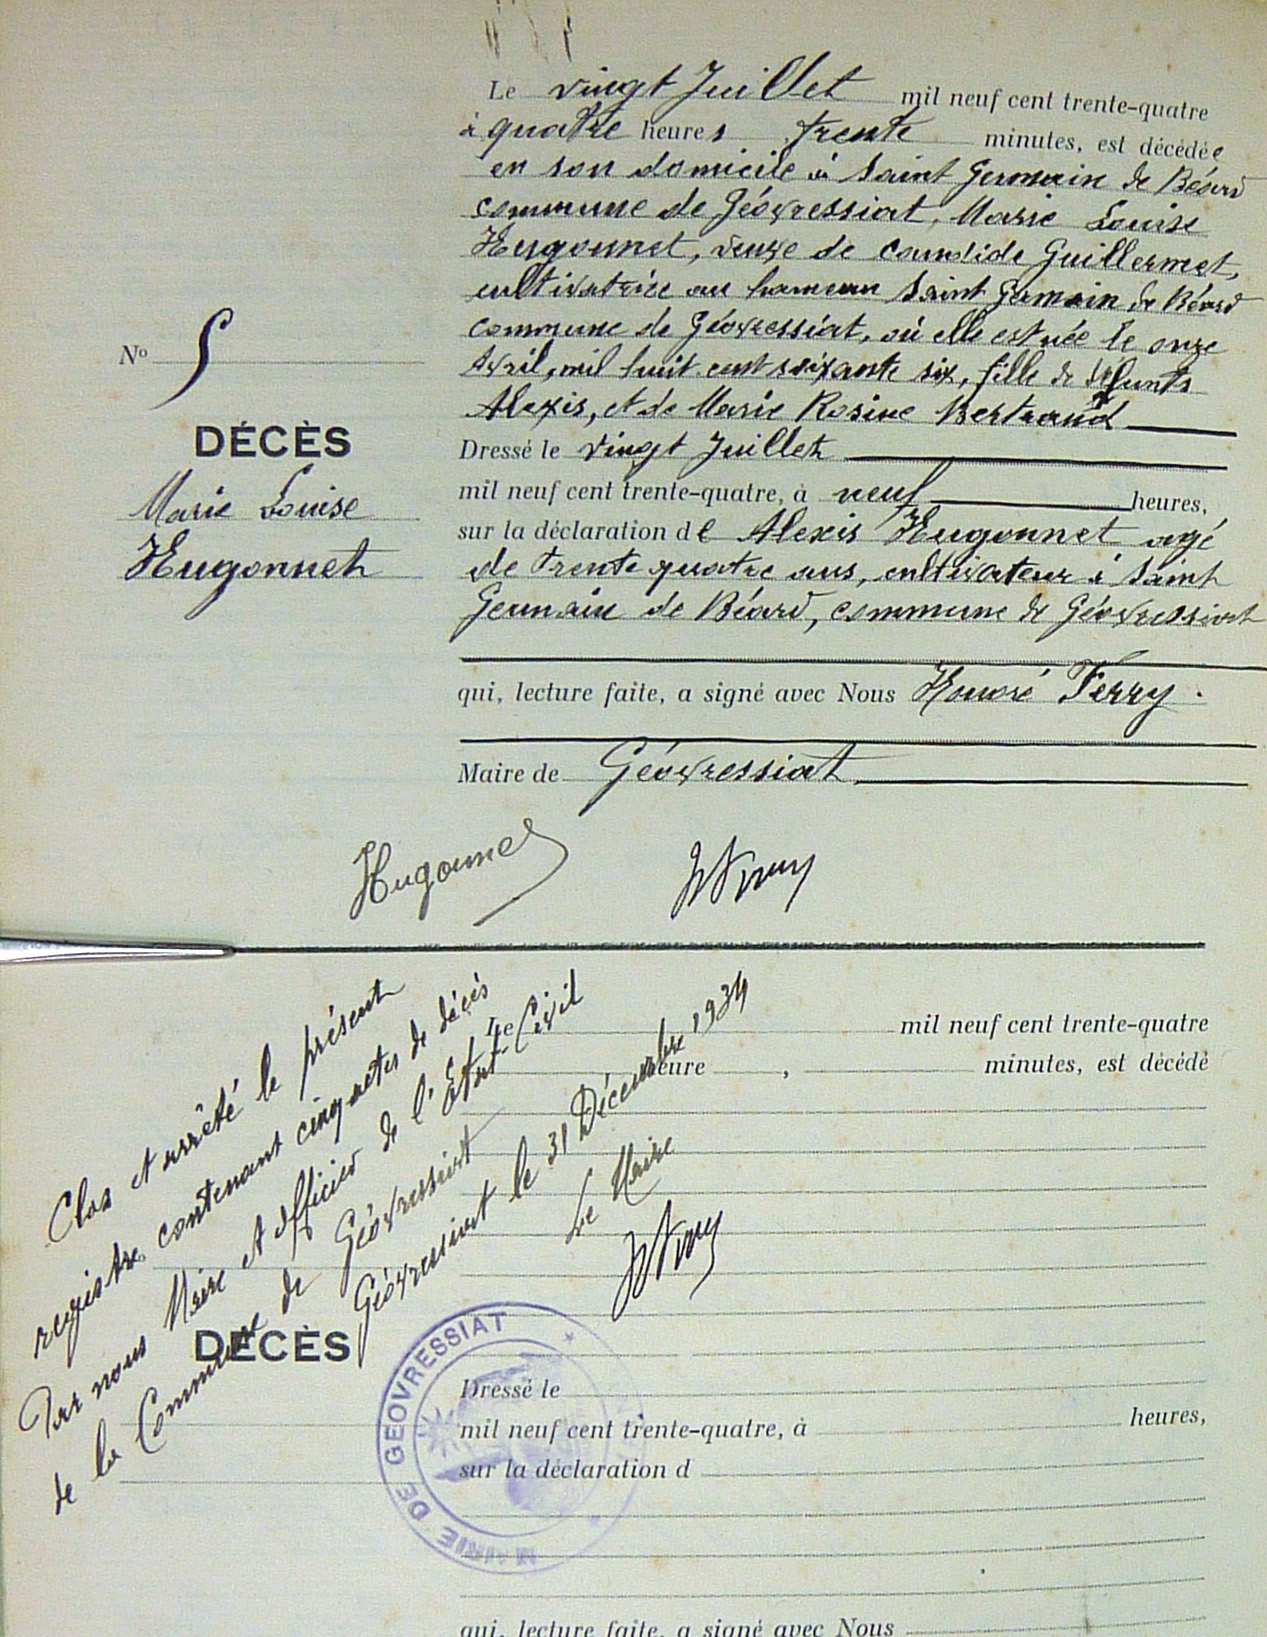 Le vingt Juillet mil neuf cent trente-quatre
à quatre heures trente minutes, est décédée
en son domicile à Saint Germain de Béard
commune de Géovressiat, Marie Louise
Hugonnet, veuve de Candide Guillermet,
cultivatrice au hameau Saint Germain de Béard
commune de Géovressiat, où elle est née le onze
Avril, mil huit cent soixante six, fille de défunts
Alexis, et de Marie Rosine Bertrand
Dressé le vingt Juillet
mil neuf cent trente-quatre, à neuf heures,
sur la déclaration de Alexis Hugonnet agé
de trente quatre ans, cultivateur à Saint
Germain de Béard, commune de Géovressiat
qui, lecture faite, a signé avec Nous Honoré Ferry.
Maire de Géovressiat
Nº 5
DÉCÈS
Marie Louise
Hugonnet
Hugonnet
HFerry
Clos et arrêté le présent
registre contenant cinq actes de décès
Par nous Maire et officier de l'État-Civil
de la Commune de Géovressiat
Géovressiat le 31 Décembre 1934
Le Maire
HFerry
Le mil neuf cent trente-quatre
heure , minutes, est décédé
DÉCÈS
MAIRIE DE GEOVRESSIAT
Dressé le
mil neuf cent trente-quatre, à heures,
sur la déclaration d
qui, lecture faite, a signé avec Nous